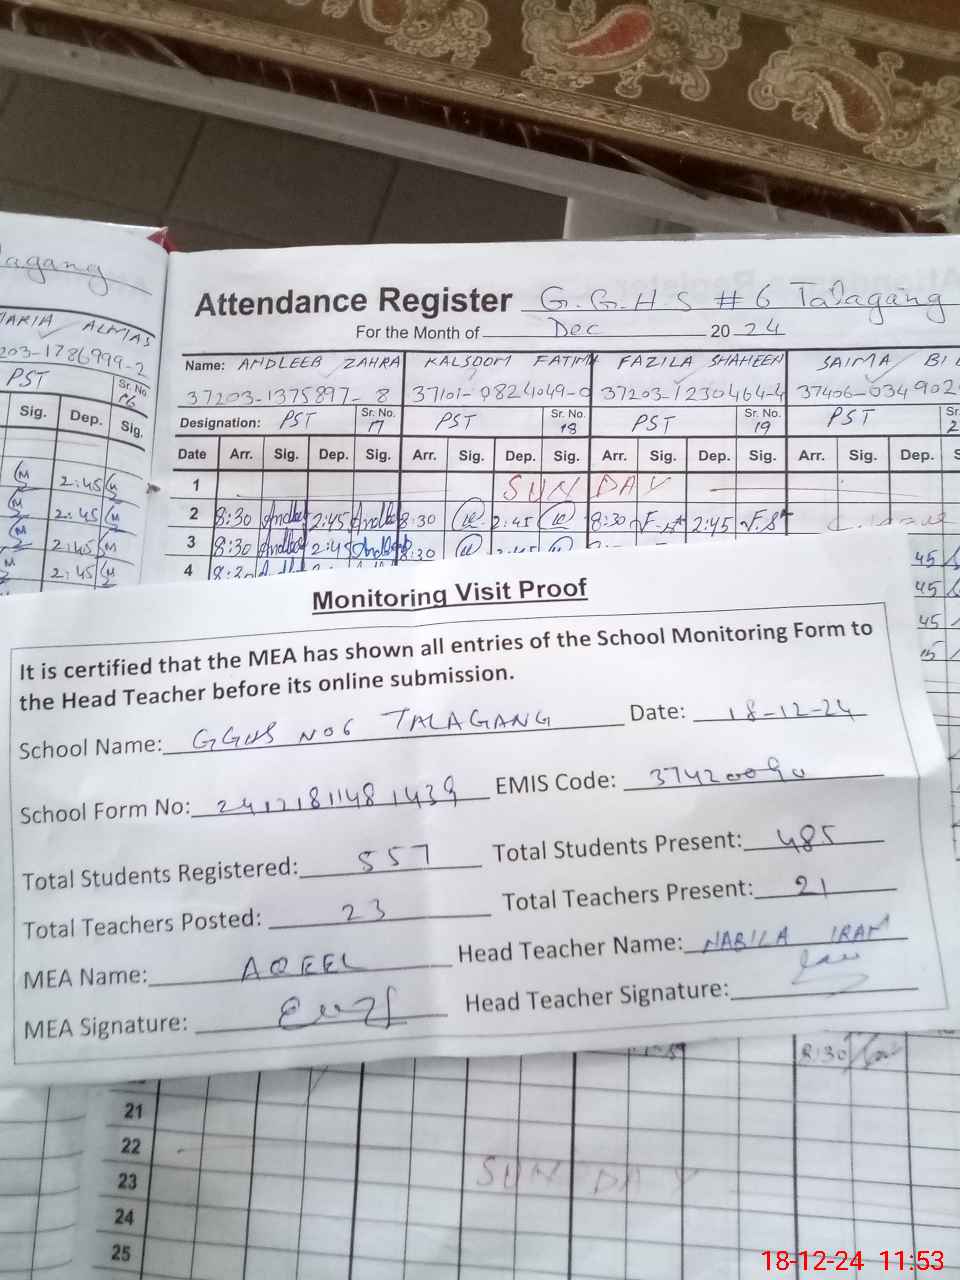 Attendance Register G.G.H S #6 Talagang
For the Month of Dec 2024
Name: ANDLEEB ZAHRA KALSOOM FATIM FAZILA SHAHEEN SAIMA BI
37203-1375897-8 37101-0824049-0 37203-1230464-4 37406-034902
Designation: PST Sr. No. 17 PST Sr. No. 18 PST Sr. No. 19 PST
Date Arr. Sig. Dep. Sig. Arr. Sig. Dep. Sig. Arr. Sig. Dep. Sig. Arr. Sig. Dep.
1 SUNDAY
2 8:30 2:45 8:30 2:45 8:30 2:45
3 8:30 2:45 8:30
4 8:30
agang
MARIA ALMAS
203-1786999-2
PST Sr. No. 16
Sig. Dep. Sig.
2:45
2:45
2:45
2:45
45
45
45
Monitoring Visit Proof
It is certified that the MEA has shown all entries of the School Monitoring Form to
the Head Teacher before its online submission.
School Name: GGHS NO6 TALAGANG Date: 18-12-24
School Form No: 24121811481439 EMIS Code: 37420090
Total Students Registered: 557 Total Students Present: 485
Total Teachers Posted: 23 Total Teachers Present: 21
MEA Name: AQEEL Head Teacher Name: NABILA IRAM
MEA Signature: Head Teacher Signature:
8:30
21
22 SUNDAY
23
24
25
18-12-24 11:53